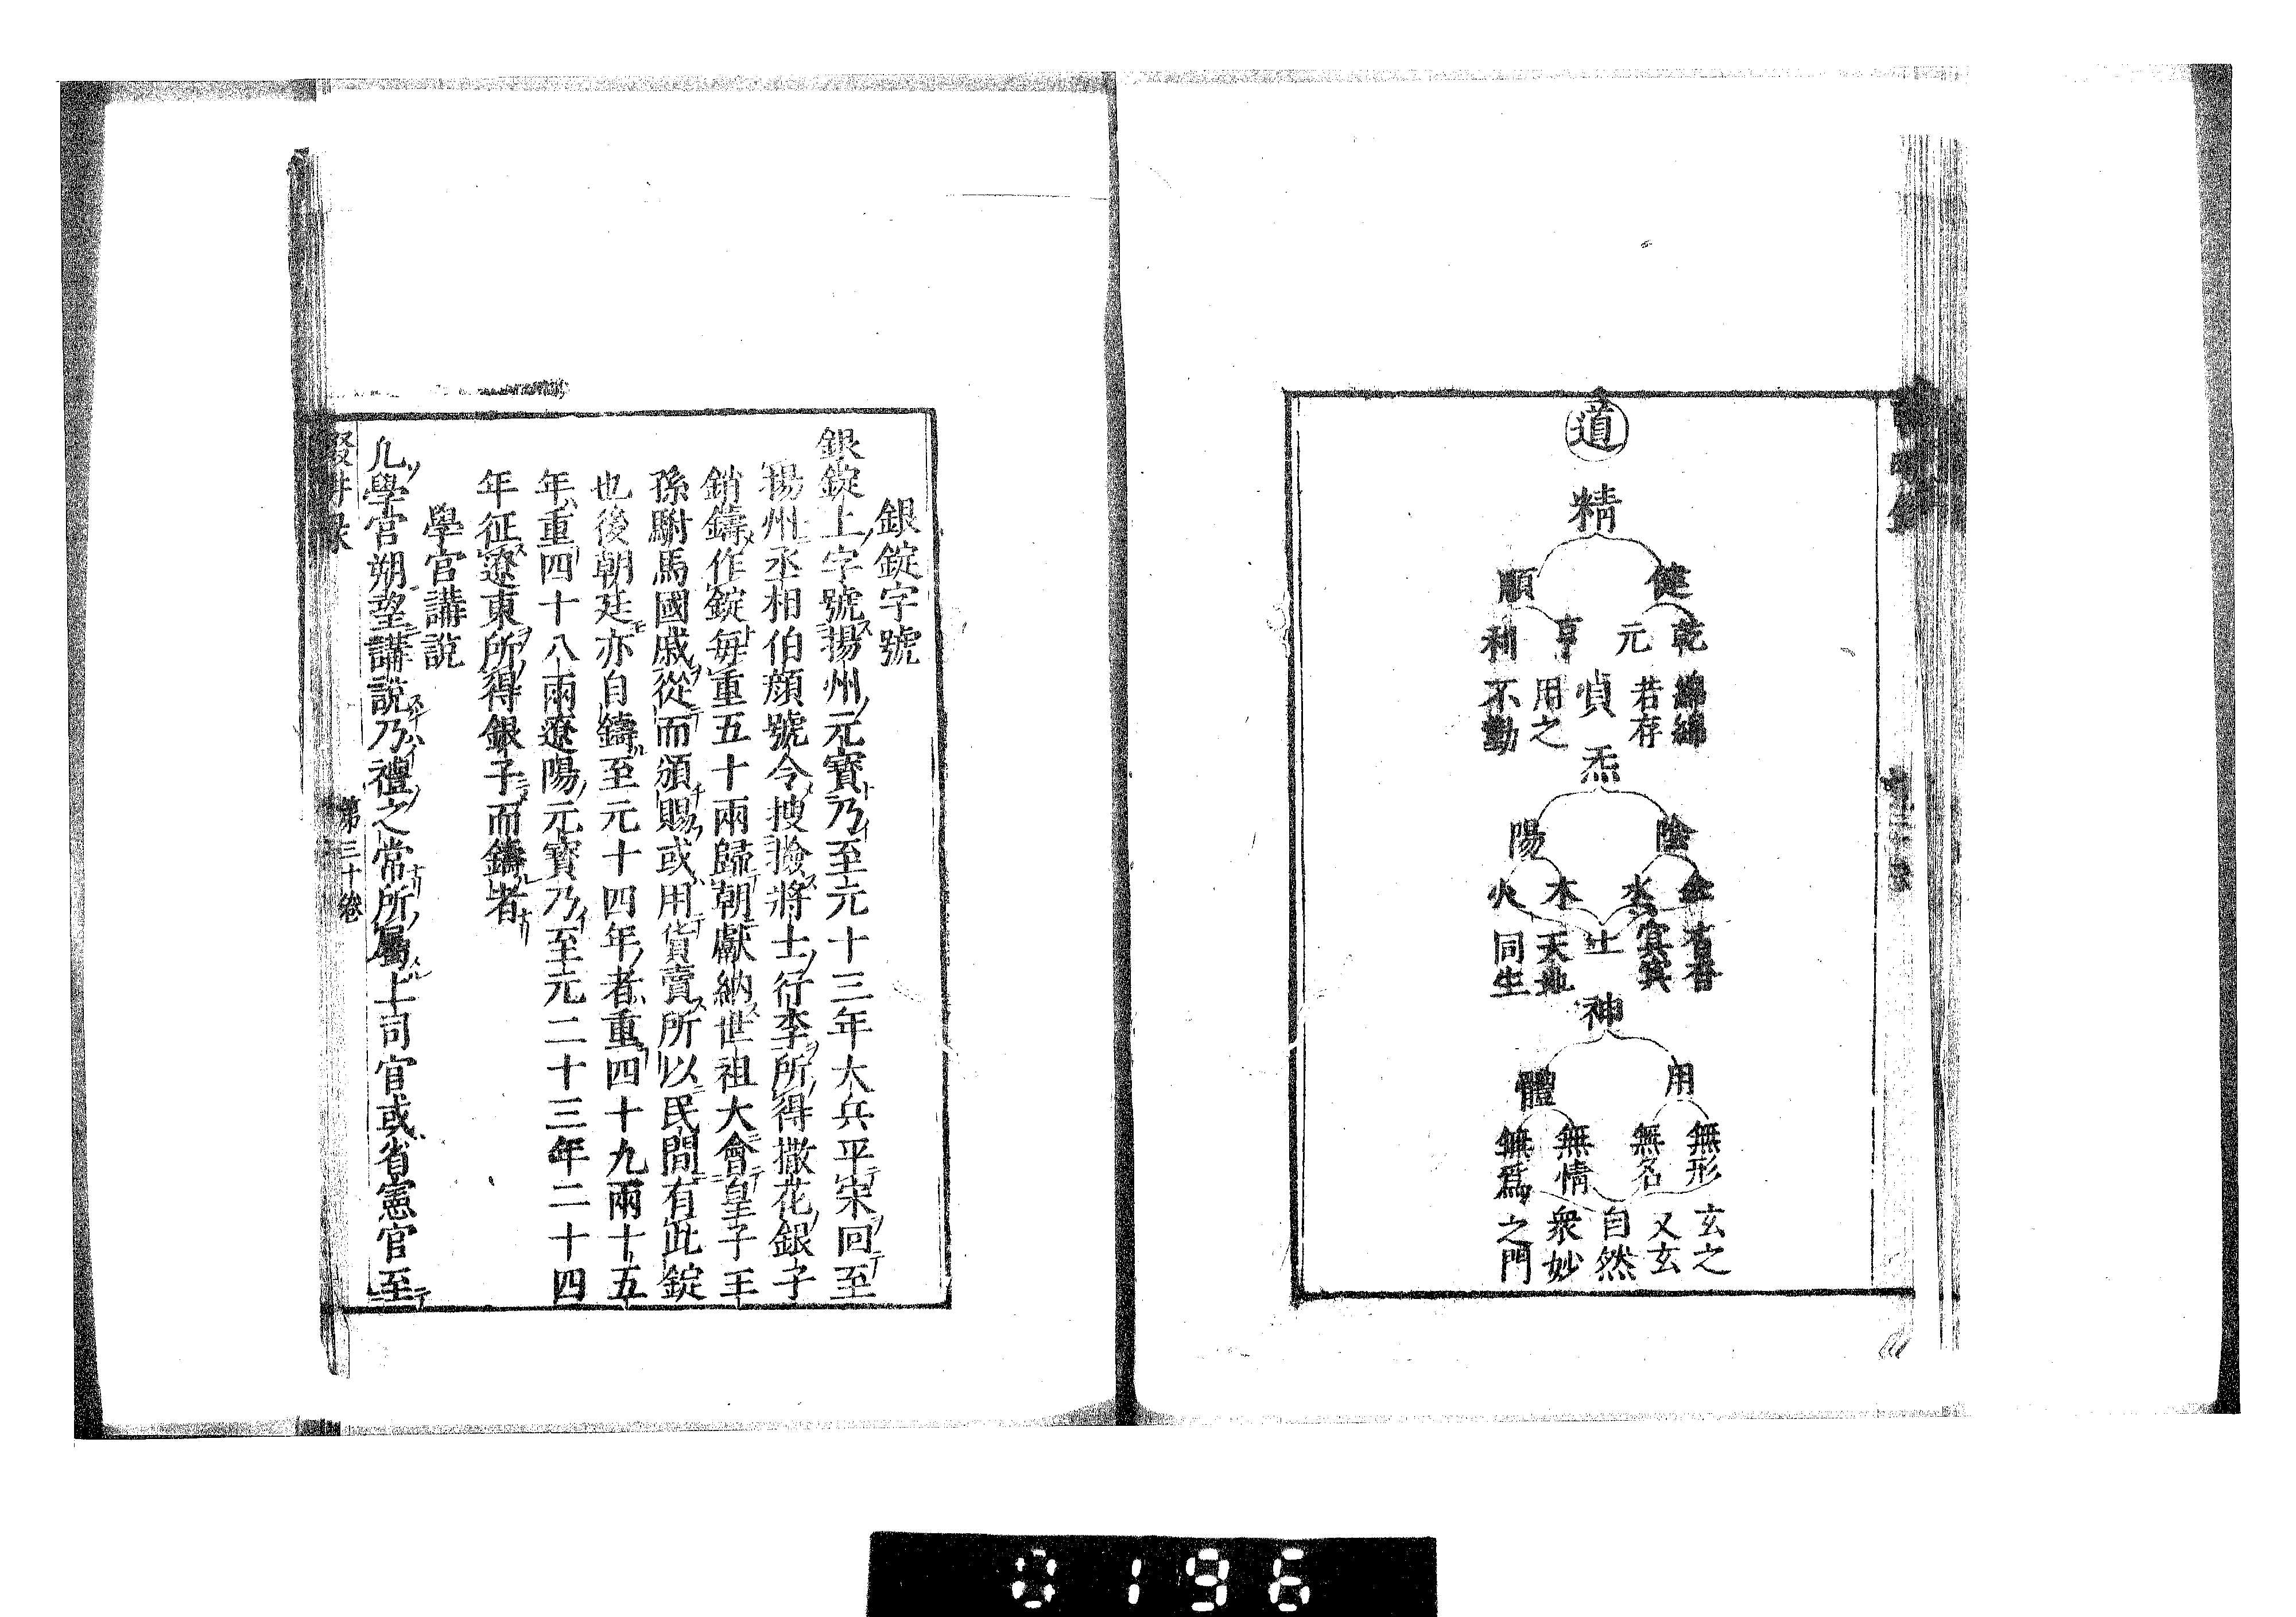 道
精
健
順
乾
元
亨
利
綿綿
若存
貞
用之
不勤
炁
陰
陽
金
水
木
火
杳杳
冥冥
土
天地
同生
神
用
體
無形
無名
無情
無爲
玄之
又玄
自然
衆妙
之門
銀錠字號
銀錠上字號揚州元寶乃至元十三年大兵平宋回至
揚州丞相伯顔號令搜撿將士行李所得撒花銀子
銷鑄作錠毎重五十兩歸朝獻納世祖大會皇子王
孫駙馬國戚從而頒賜或用貨賣所以民間有此錠
也後朝廷亦自鑄至元十四年者重四十九兩十五
年重四十八兩遼陽元寶乃至元二十三年二十四
年征遼東所得銀子而鑄者
學官講說
凡學官朔望講說乃禮之常所屬上司官或省憲官至
輟耕录
第三十卷
0196